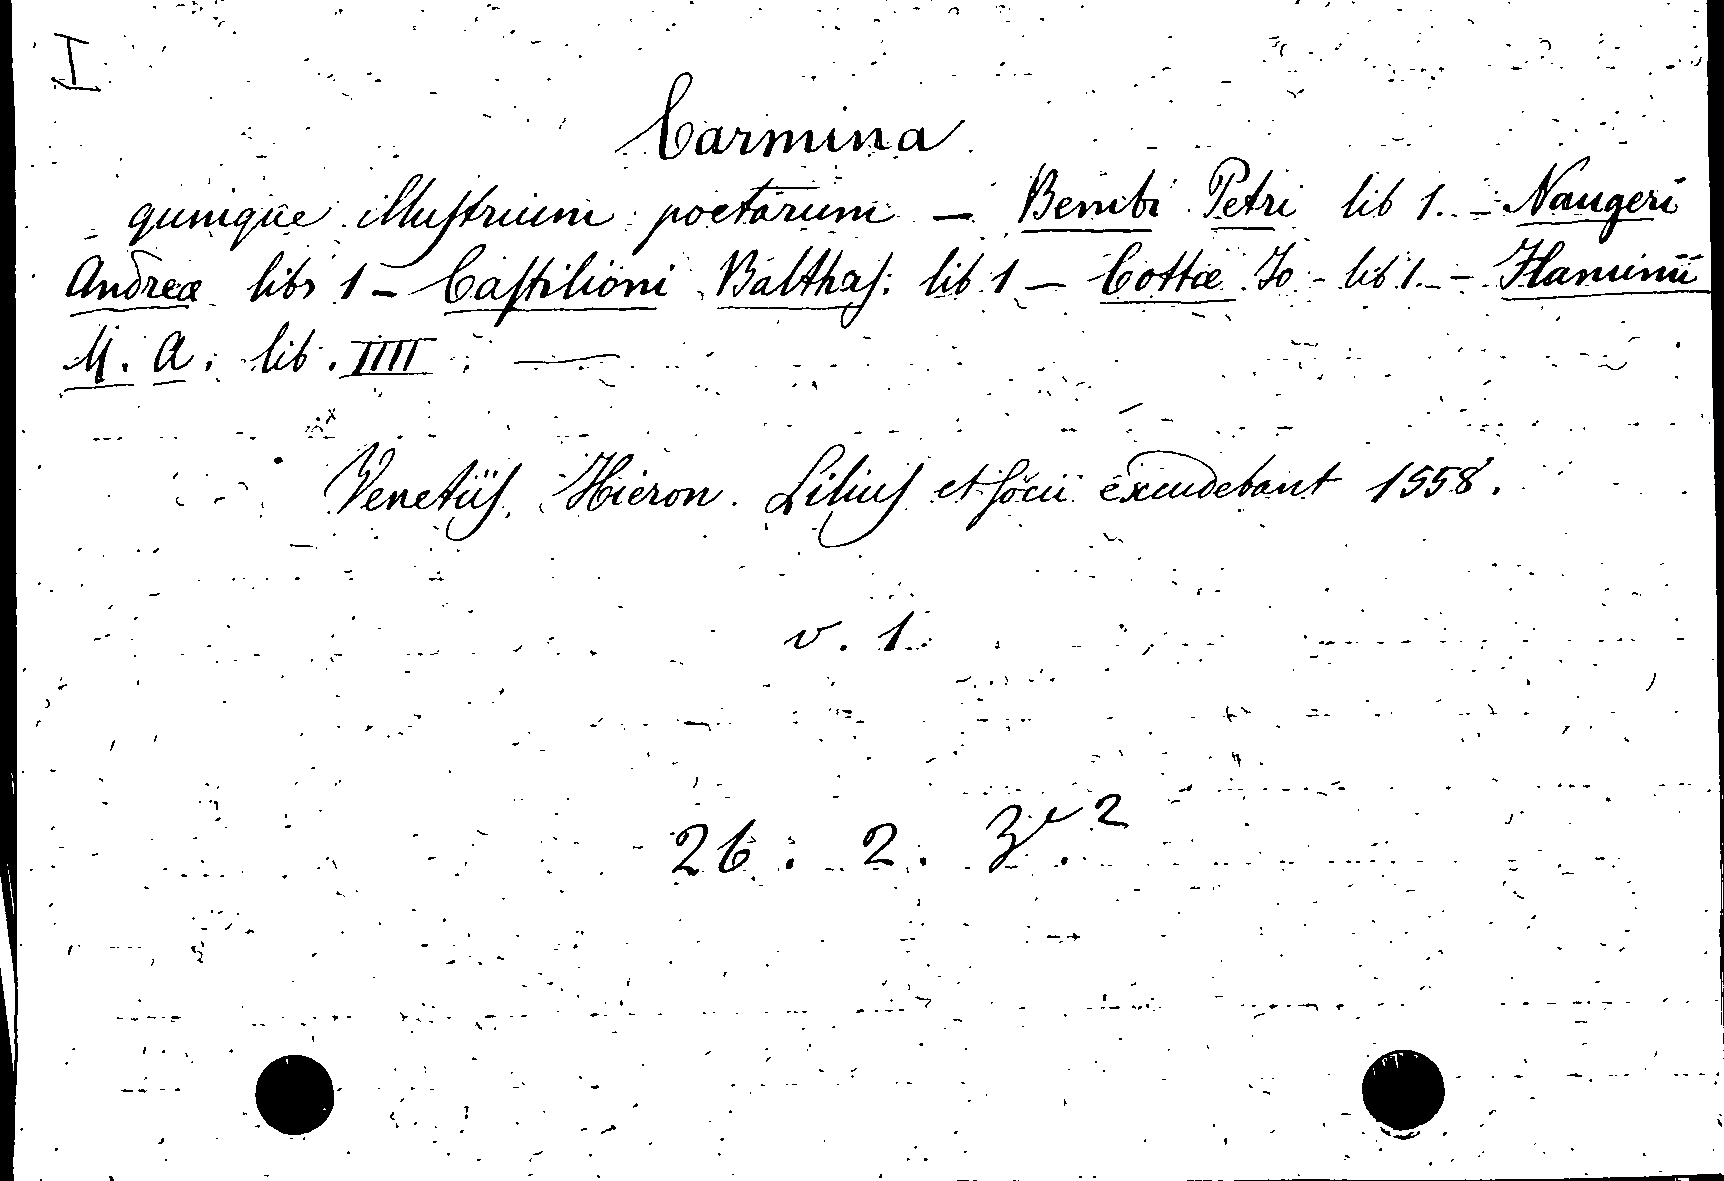 I
Carmina
quinque illustrium poetarum — Bembi Petri lib 1. - Naugeri
Andreæ libr 1 - Castilioni Balthas: lib 1 — Cottæ Jo - lib 1. - Flaminii
M. A: lib. IIII
Venetiis, Hieron. Lilius et socii excudebant 1558.
v. 1
26: 2. 2